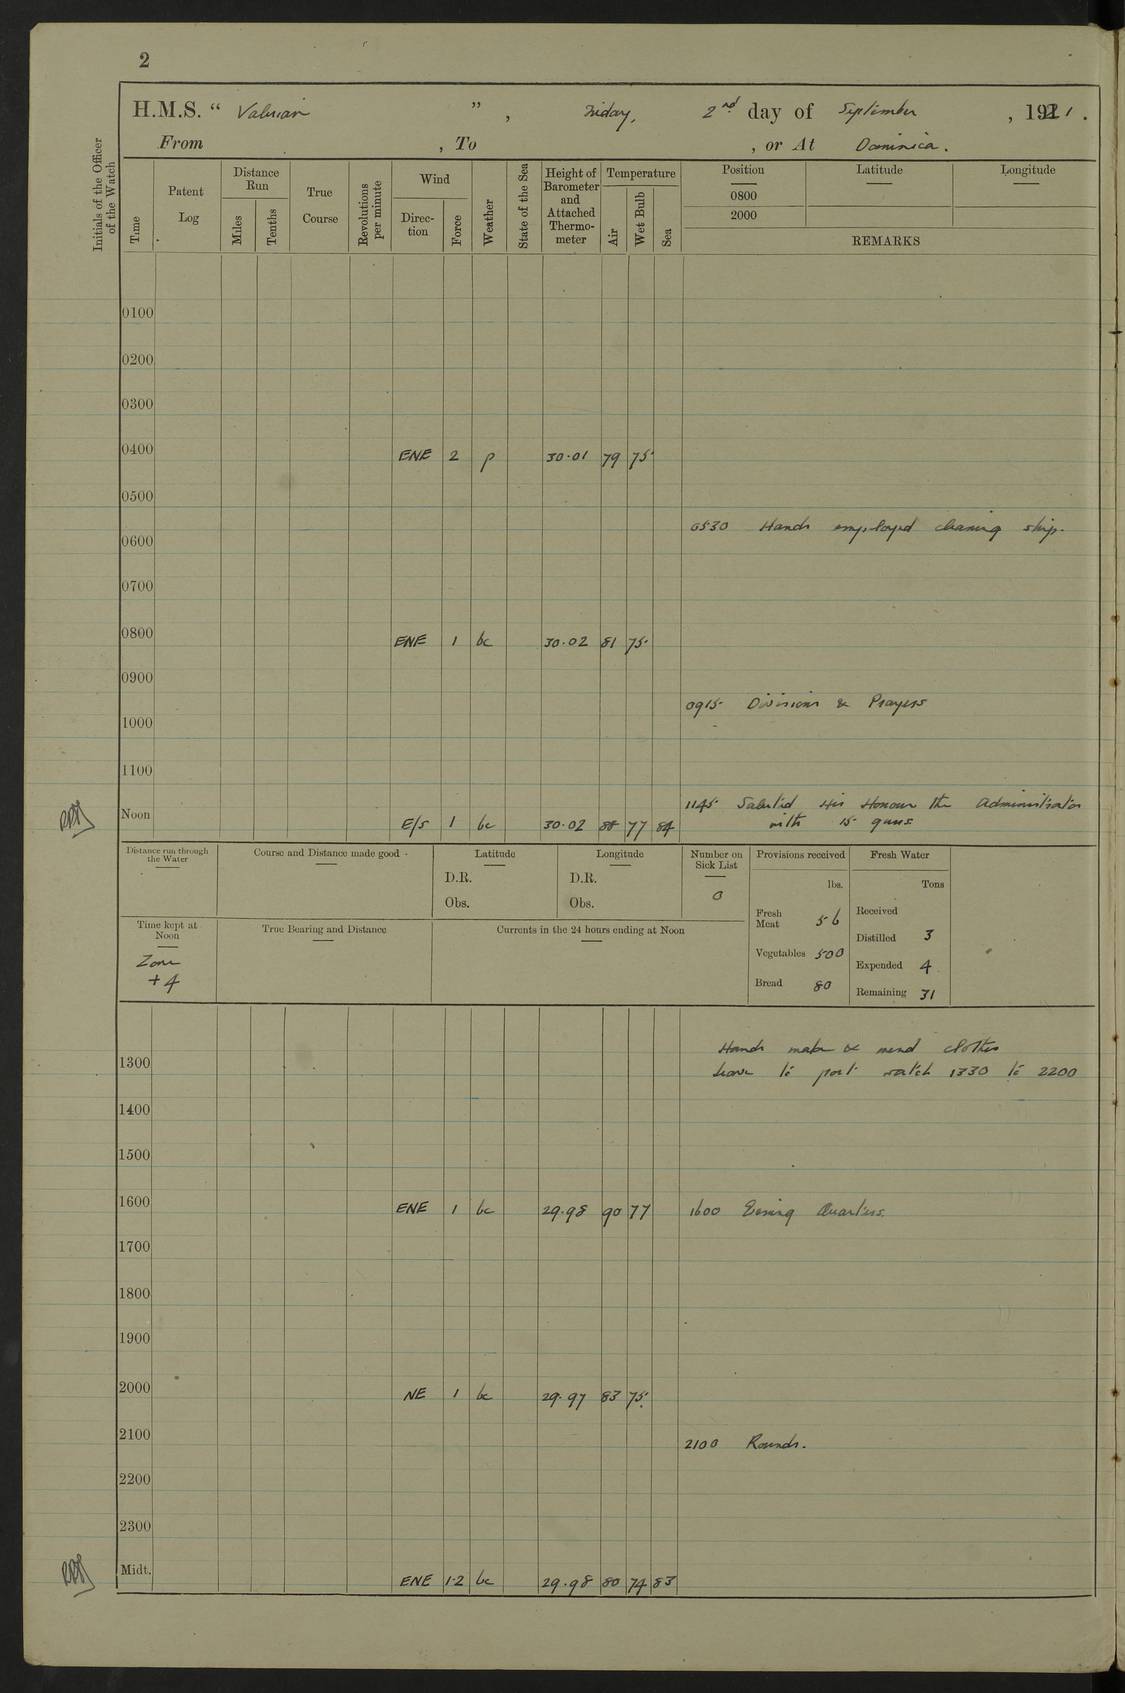 2
H.M.S. “ Valerian ” , Friday, 2nd day of September , 1921 .
From , To , or At Dominica .
Initials of the Officer of the Watch
Time
Patent Log
Distance Run
Miles
Tenths
True Course
Revolutions per minute
Wind
Direc-tion
Force
Weather
State of the Sea
Height of Barometer and Attached Thermo-meter
Temperature
Air
Wet Bulb
Sea
Position Latitude Longitude
0800
2000
REMARKS
0100
0200
0300
0400 ENE 2 p 30.01 79 75
0500
0530 Hands employed cleaning ship.
0600
0700
0800 ENE 1 bc 30.02 81 75
0900
0915 Divisions & Prayers
1000
1100
1145 Saluted His Honour the Administrator
Noon E/S 1 bc 30.02 88 77 84 with 15 guns
Distance run through the Water
Course and Distance made good
Latitude
D.R.
Obs.
Longitude
D.R.
Obs.
Number on Sick List
0
Provisions received
lbs.
Fresh Meat 56
Vegetables 500
Bread 80
Fresh Water
Tons
Received
Distilled 3
Expended 4
Remaining 31
Time kept at Noon
Zone
+ 4
True Bearing and Distance
Currents in the 24 hours ending at Noon
Hands make & mend clothes
1300 Leave to port watch 1330 to 2200
1400
1500
1600 ENE 1 bc 29.98 90 77 1600 Evening Quarters.
1700
1800
1900
2000 NE 1 bc 29.97 83 75
2100 2100 Rounds.
2200
2300
Midt. ENE 1-2 bc 29.98 80 74 83